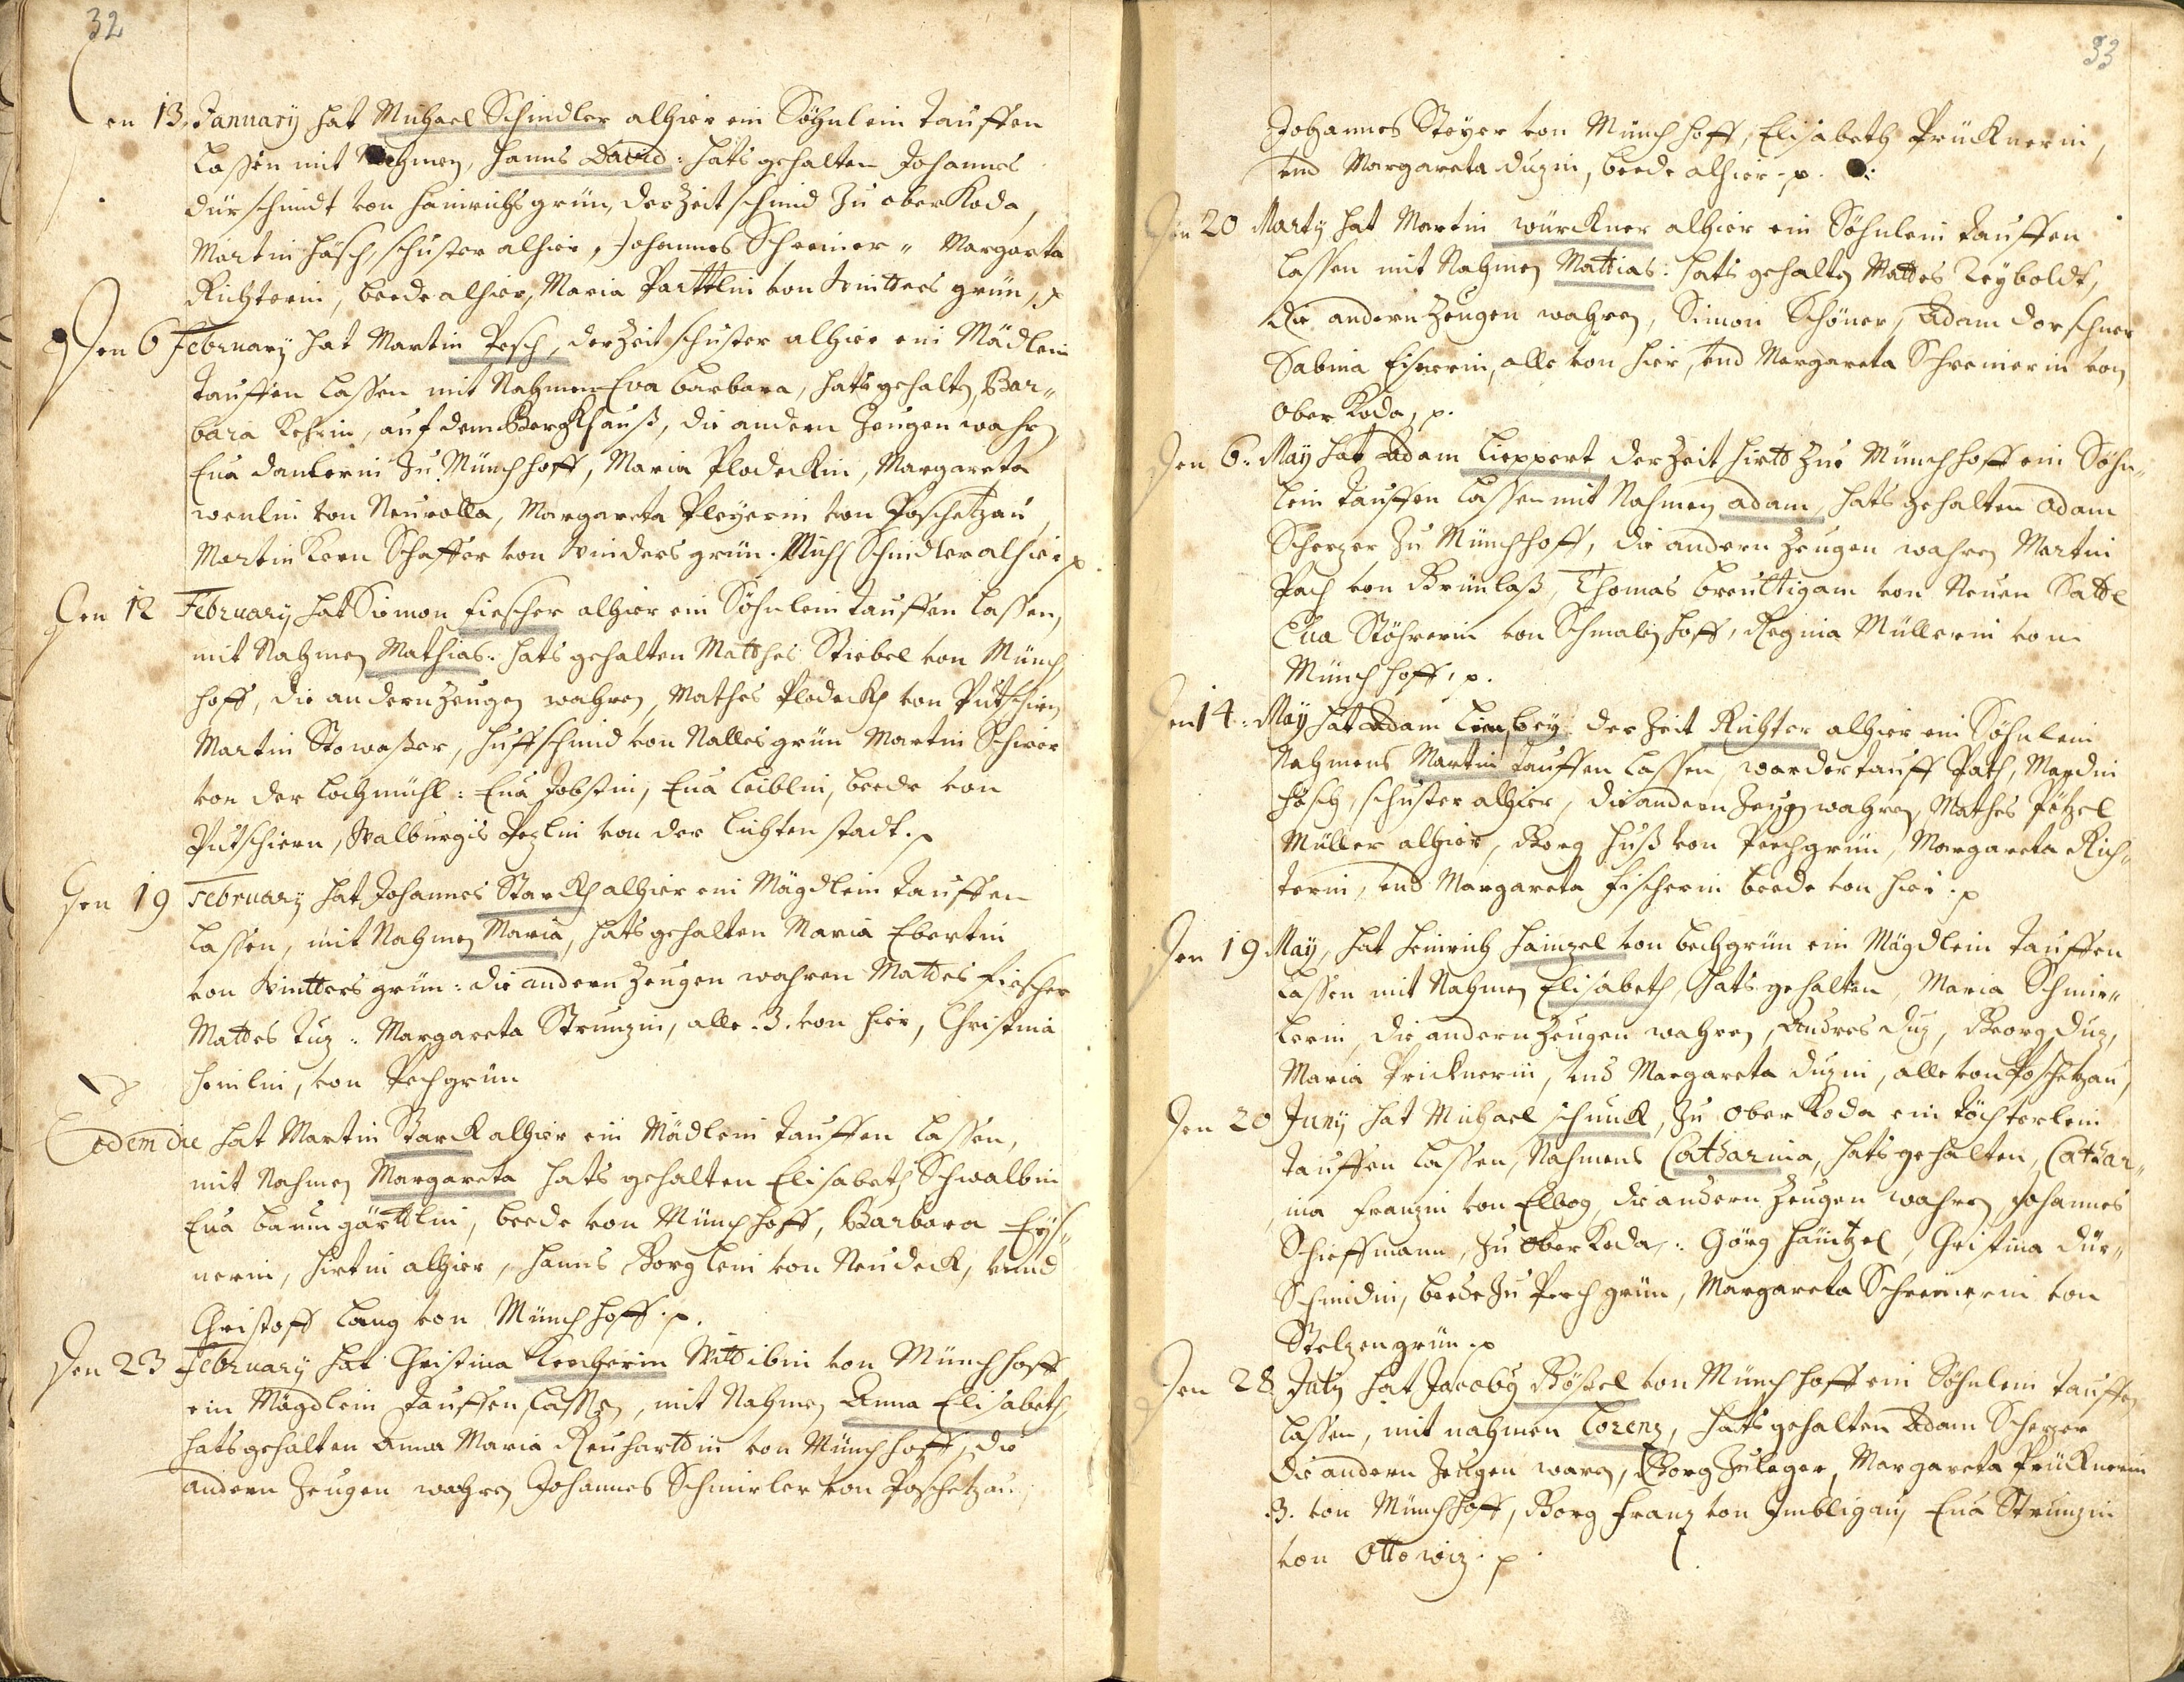 32
Den 13. January hat Michael Schindler alhier ein Söhnlein tauffen
lassen mit Nahmen, Hanns David: hats gehalten Johannes
dürschmidt von Hainrichsgrün, der Zeit schmid zu ober Roda,
Martin Häsch, schuster alhier, Johannes Schreiner, Margareta
Richterin, beede alhier, Maria Parttlin von Wintters grün, p
Den 6 February hat Martin Pesch, der Zeit schuster alhier ein Mädlein
tauffen lassen mit Nahmen Eva Barbara, hats gehalten, Bar„
bara Kehrin, auf dem Bergkhauß, die andern Zeugen wahrn
Eua Dankerin zu Münchhoff, Maria Plodeckin, Margareta
wenlin von Neurolla, Margareta Pleyerin von Poschetzau,
Martin Kern Schaffer von Winders grün. Mich Schindler alhier p.
Den 12 February hat Simon Fiescher alhier ein Söhnlein tauffen lassen,
mit Nahmen Mathias: hats gehalten Matthes Stiebel von Münch
hoff, die andern Zeugen wahren, Mathes Plodeckh von Putschirn
Martin Stowasser, Huffschmid von Nallesgrün Martin Schirer
von der Lochmühl: Eua Jobstin, Eua Leiblin, beede von
Putschiern, Walburgis Pezlin von der lichten stadt. p
Den 19 February hat Johannes Starckh alhier ein Mägdlein tauffen
lassen, mit Nahmen Maria, hats gehalten Maria Ebertin
von Wintters grün: die andern Zeugen wahren Mattes Fiescher
Mattes Tuz: Margareta Strunzin, alle .3. von hier, Christina
Heinlin, von Pechgrün
Eodem die hat Martin Starck alhier ein Mädlein tauffen lassen,
mit Nahmen Margareta hats gehalten Elisabeth Schwalbin
Eua baumgärttlin, beede von Münchhoff, Barbara Eys„
nerin, hirtin alhier, Hanns Görglein von Neudeck, vnnd
Christoff Lang von Münchhoff. p.
Den 23 February hat Christina Lercherin Wittibin von Münchhoff
ein Mägdlein tauffen lassen, mit Nahmen Anna Elisabeth,
hats gehalten Anna Maria Reuharttin von Münchhoff, die
andern Zeugen wahren Johannes Schmirler von Poschetzau,
33
Johannes Steyer von Münchhoff, Elisabeth Prücknerin,
vnd Margareta Duzin, beede alhier. p.
Den 20 Marty hat Martin würckner alhier ein Söhnlein tauffen
lassen mit Nahmen Mattias: hats gehalten Mattes Leyboldt,
Die andern Zeugen wahren, Simon Schöner, Adam dorschner
Sabina Eisnerin, alle von hier, vnd Margareta Schreinerin von
Ober Roda, p.
Den 6. May hat Adam Lieppert der Zeit hirtt zue Münchhoff ein Söhn„
lein tauffen lassen mit Nahmen Adam, hats gehalten Adam
Scherzer zu Münchhoff, die andern Zeugen wahren Martin
Pach von Grünlaß, Thomas breuttigam von Neuen Sattl
Eua Stöhrerin von Schmalenhoff, Regina Müllerin von
Münchhoff, p.
Den 14. May hat Adam der Zeit Richter alhier ein Söhnlein
Nahmens Martin tauffen lassen, war der tauff Path, Mardin
Hösch, schuster alhier, die andern Zeugen wahren, Mathes Pötzel
Müller alhier, Georg Huß von Pechgrün, Margareta Rich„
terin, vnd Margareta Fischerin beede von hier. p
Den 19 May, hat Heinrich Hainzel von bechgrün ein Mägdlein tauffen
lassen mit Nahmen Elisabeth, hats gehalten, Maria Schmir„
lerin, die andern Zeugen wahren, Andres Duz, Georg Duz,
Maria Pricknerin, vnd Margareta Duzin, alle von Poschetzau,
Den 20 Juny hat Michael Schunck, zu ober Roda ein töchterlein
tauffen lassen, Nahmens Catharina, hats gehalten, Cathar„
ina Franzin von Elbog, die andern Zeugen wahren Johannes
Schieffmann, zu Ober Roda,: Görg Haintzel, Christina Dür„
Schmidin, beede zu Pechgrün, Margareta Schreinerin von
Stelzengrün. p
Den 28 July hat Jacoby Bößel von Münchhoff ein Söhnlein tauffen
lassen, mit nahmen Lorenz, hats gehalten Adam Scherzer
die andern Zeugen waren, Georg Zuleger, Margareta Prücknerin
.3. von Münchhoff, Georg Franz von Imbligau, Eua Strunzin
von Ottowiz. p.